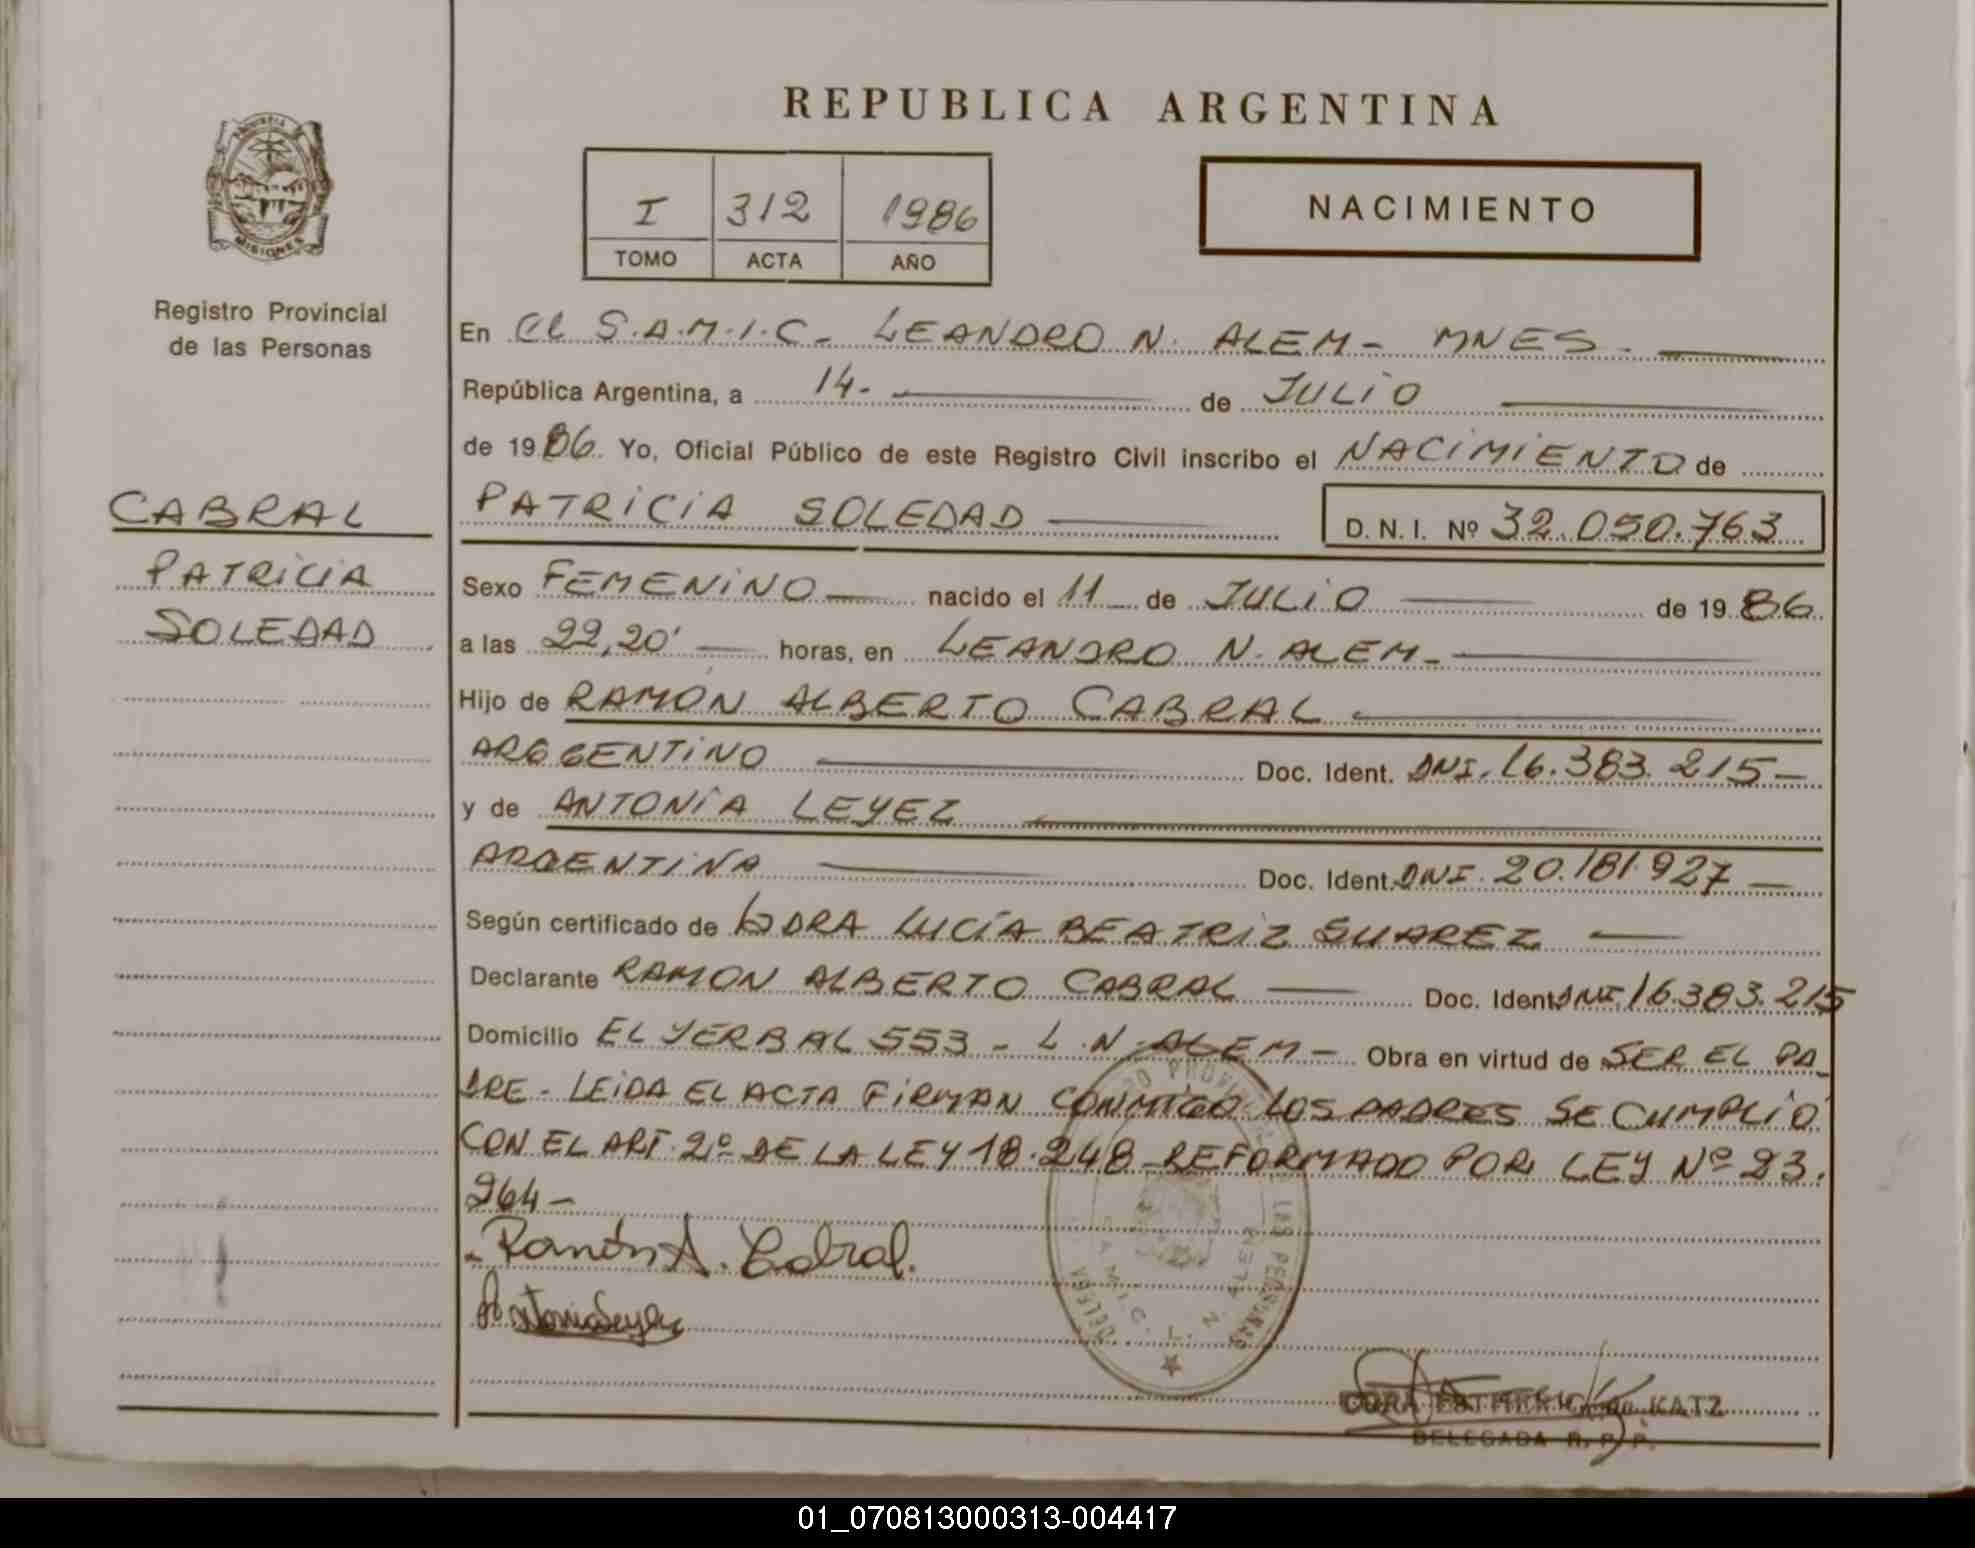 REPUBLICA ARGENTINA
I 312 1986
TOMO ACTA AÑO
NACIMIENTO
MISIONES
Registro Provincial
de las Personas
CABRAL
PATRICIA
SOLEDAD
En El S.A.M.I.C- LEANDRO N. ALEM- MNES-
República Argentina, a 14- de JULIO
de 1986. Yo, Oficial Público de este Registro Civil inscribo el NACIMIENTO de
PATRICIA SOLEDAD D. N. I. Nº 32.050.763
Sexo FEMENINO nacido el 11 de JULIO de 1986
a las 22,20' horas, en LEANDRO N. ALEM-
Hijo de RAMON ALBERTO CABRAL
ARGENTINO Doc. Ident. DNI. 16.383.215-
y de ANTONIA LEYEZ
ARGENTINA Doc. Ident. DNI. 20.181.927-
Según certificado de DRA LUCÍA BEATRIZ SUAREZ
Declarante RAMON ALBERTO CABRAL Doc. Ident. DNI. 16.383.215
Domicilio EL YERBAL 553 - L.N.ALEM- Obra en virtud de SER EL PA_
DRE- LEIDA EL ACTA FIRMAN CONMIGO LOS PADRES SE CUMPLIÓ
CON EL ART. 2º DE LA LEY 18.248 REFORMADO POR LEY Nº 23.
264-
Ramón A. Cabral.
Antonia Leyez
KATZ
DELEGADA R. P. P.
01_070813000313-004417